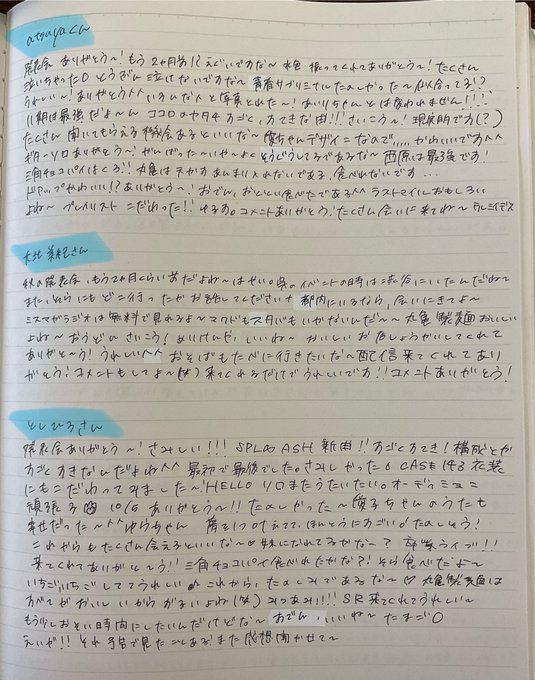 atsuyaくん
発表会 ありがとう〜!もう2ヶ月前!?えぐいですな〜 水色 振ってくれてありがとう〜!たくさん
泣いちゃった〇 とうぶん泣けないですな〜 青春サブリミナル たのしかった〜 似合ってる!?
うれしい〜!ありがとう^^ いろんな人と写真とれた〜!あいりちゃんとは変わりません!!!
11期は最強だよ〜ん ココロのカタチ すごく、すてきな曲!!!さいこう〜!現実的です(?)
たくさん 聞いてもらえる機会あるといいな〜 ちゃんデザインなので,,,,かわいいです^^
ギターソロありがとう!がんばった〜いや〜よく どうどうしてるであるな〜 西原は最強です!
三角チョコパイはくろ!丸亀は天かすあんまり入れないである、食べれないです...
ドアップかわいい!?ありがとう〜!おでん、おととい食べたである^^ ラストマイルおもしろい
よね〜 プレイリスト こだわった!!ゆるす。コメントありがとう!たくさん会いに来てね〜
さん
秋の発表会、もう2ヶ月くらい前だよね〜はやい。のイベントの時は渋谷にいたんだね〜
また、そらにもどこ行きったかお話してください+ 都内にいるなら、会いにきてよ〜
ミスマガラジオは無料で見れるよ〜 マクドもスタバもいかないんだ〜〜 丸亀製麺おいしい
よね〜 おうどんさいこう! いいね〜 おいしいお店しょうかいしてくれて
ありがと〜う!うれしい^^ おそばもたべに行きたいな〜 配信来てくれてあり
がとう!コメントもしてよ〜(笑) 来てくれるだけでうれしいです!!コメントありがとう!
としひろさん
発表会ありがとう〜!さみしい!!! SPL∞ASH 新曲!!すごくすてき!構成とか
すごくすきなんだよね^^ 最初で最後でした。さみしかった。CASE143 衣装
にもこだわってみました〜 HELLO ソロまたうたいたい。オーディション
頑張る 10/6 ありがとう〜!!たのしかった〜 ちゃんのうたも
幸せだった〜^^ ゆうちゃん 、ほんとうにすごい!たのしそう!
これからもたくさん会えるといいな〜 妹になれてるかな〜? 卒業ライブ!!
来てくれてありがと〜う!! 三角チョコパイ食べれたかな?!そら食べたよ〜
いちごいちごしててうれしい。これから、たのしみであるな〜♡ 丸亀製麺は
すべてがおいしいからがまんよね(笑) みつあみ!!!! SR来てくれてうれしい〜
もう少しおそい時間にしたいんだけどな〜 おでん、いいね〜 たまご〇
えいが!!それ予告で見たことある!また感想聞かせて〜